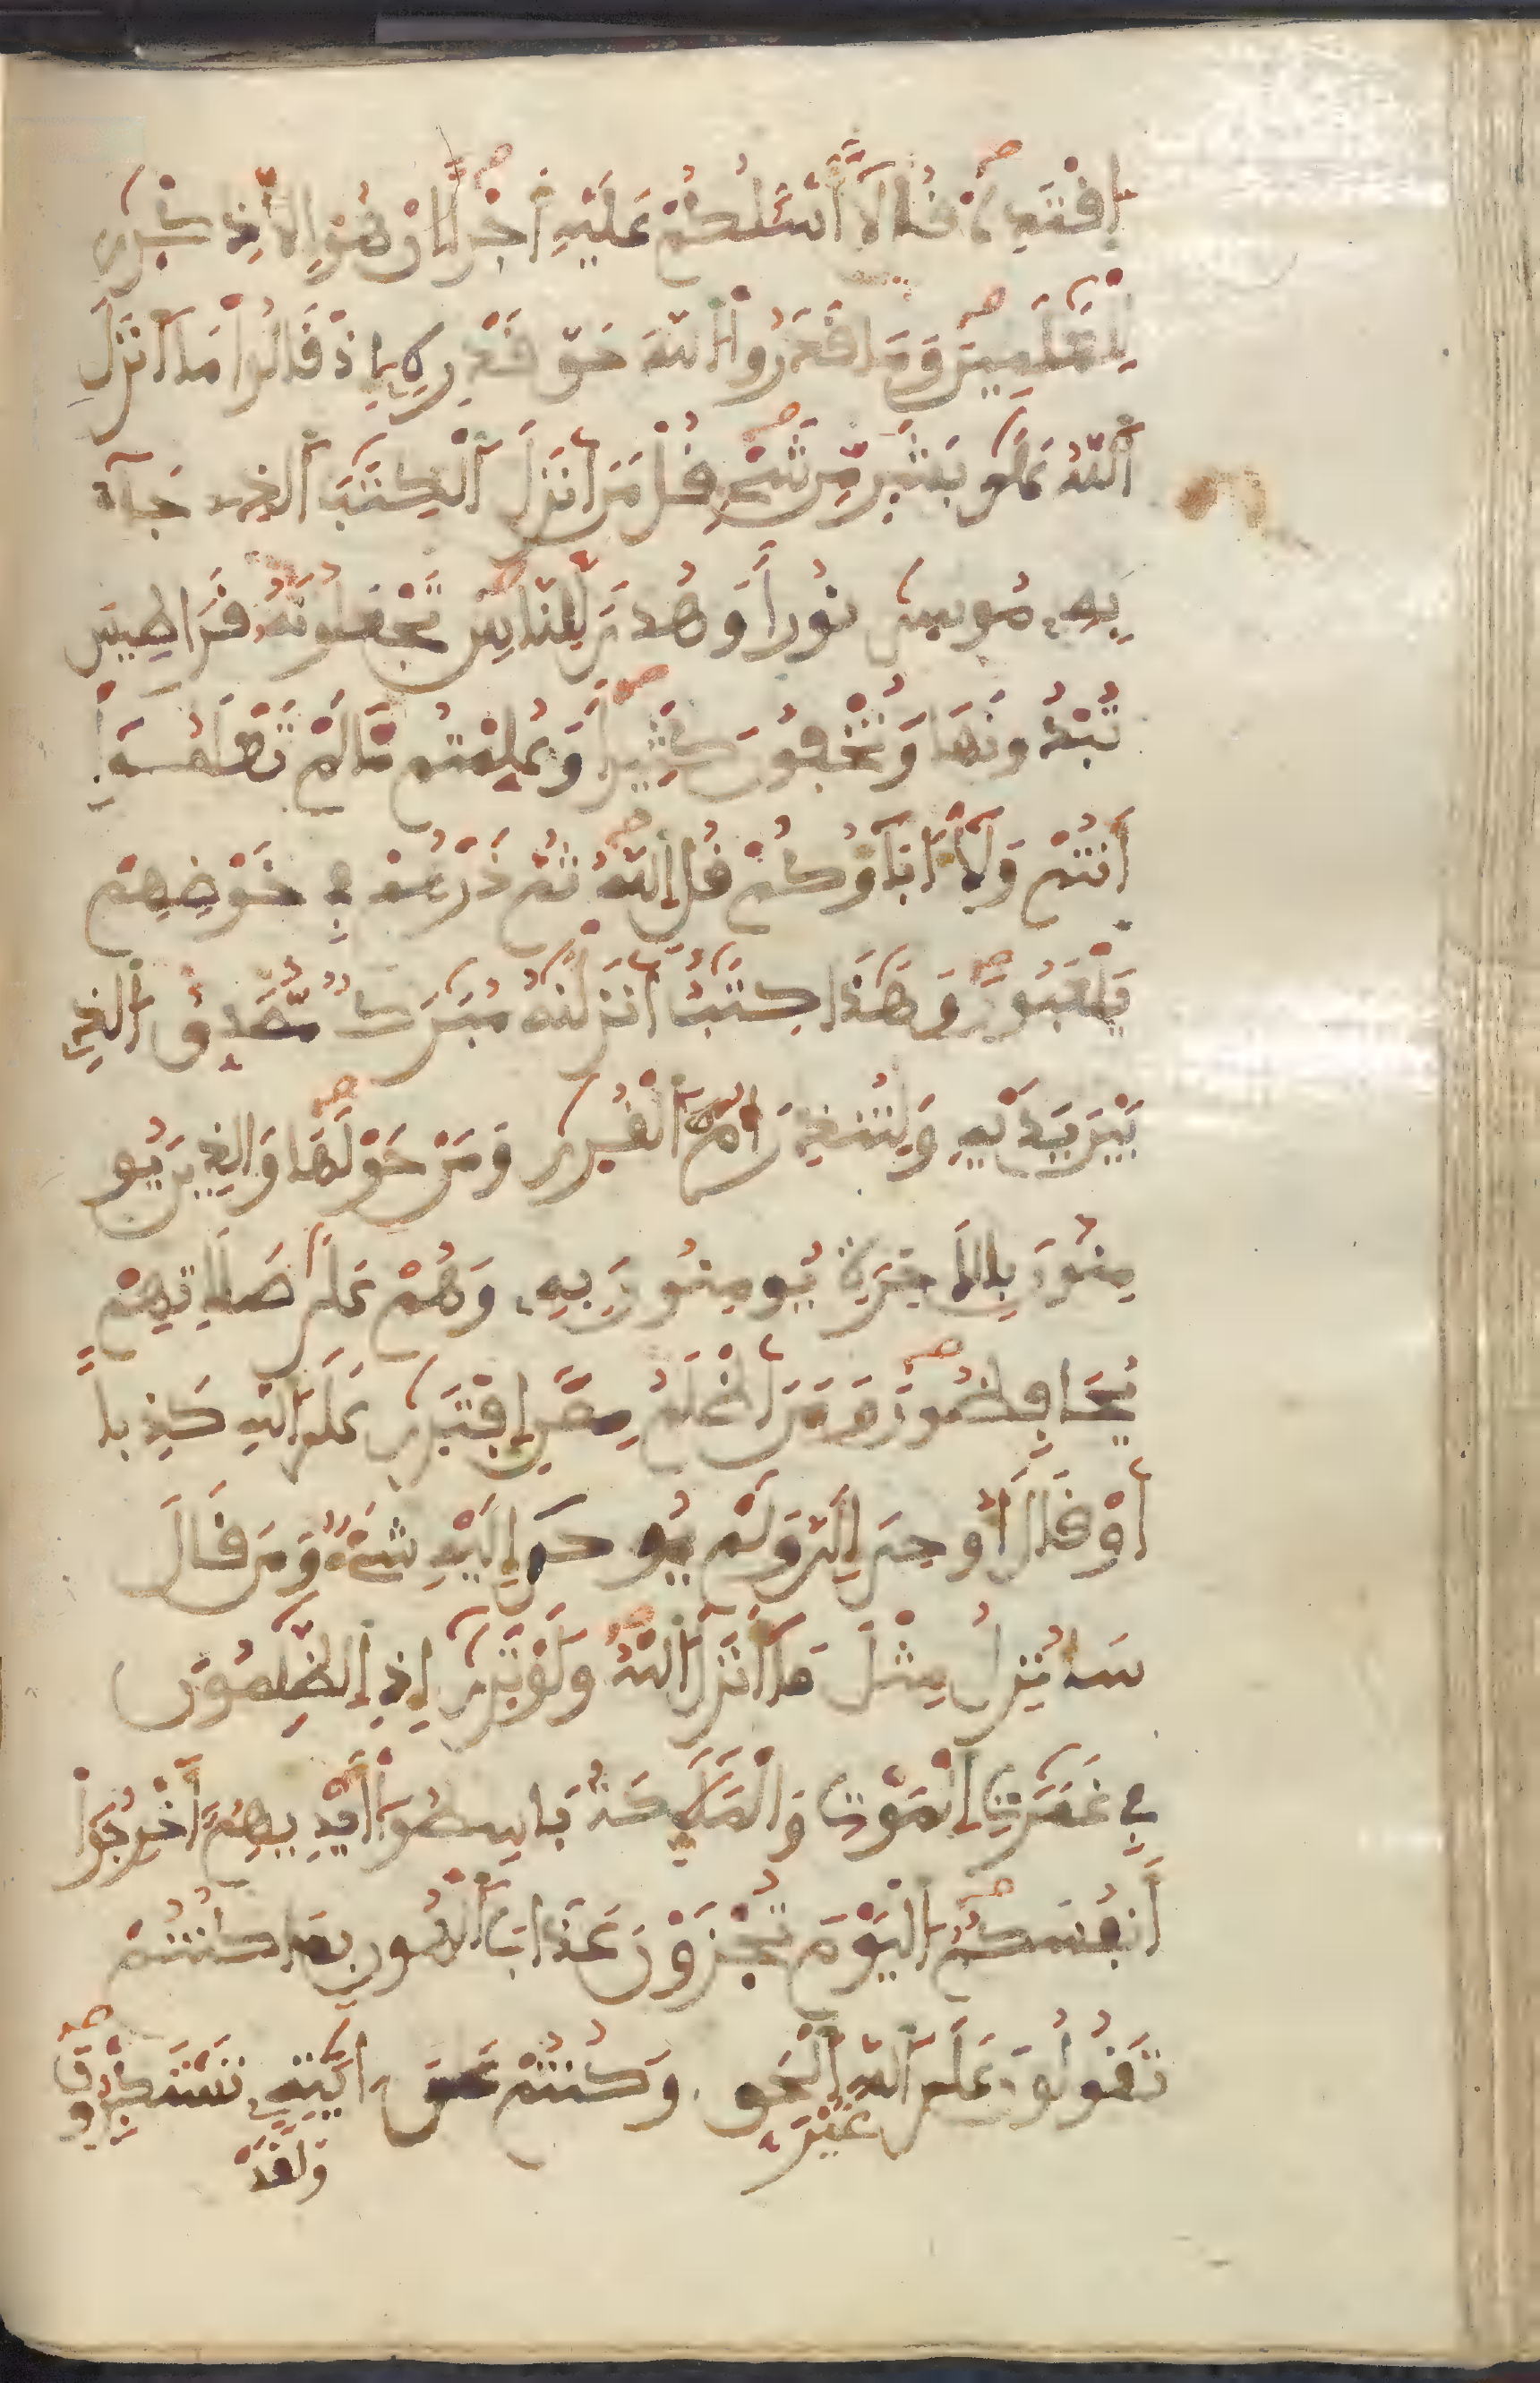 اِفْتَدِهْ قُل لَّا أَسْـَٔلُكُمْ عَلَيْهِ أَجْراً اِنْ هُوَ إِلَّا ذِكْر۪ىٰ
لِلْعَٰلَمِينَ وَمَا قَدَرُواْ اُللَّهَ حَقَّ قَدْرِهِۦ إِذْ قَالُواْ مَا أَنزَلَ
اَللَّهُ عَلَىٰ بَشَرٍ مِّن شَےْءٍ قُلْ مَنَ اَنزَلَ اَلْكِتَٰبَ اَلذِے جَآءَ
بِهِۦ مُوسىٰ نُوراً وَهُدىً لِّلنَّاسِ تَجْعَلُونَهُۥ قَرَاطِيسَ
تُبْدُونَهَا وَتُخْفُونَ كَثِيراً وَعُلِّمْتُم مَّا لَمْ تَعْلَمُوٓاْ
أَنتُمْ وَلَآ ءَابَآؤُكُمْ قُلِ اِللَّهُ ثُمَّ ذَرْهُمْ فِے خَوْضِهِمْ
يَلْعَبُونَ وَهَٰذَا كِتَٰبٌ اَنزَلْنَٰهُ مُبَٰرَكٌ مُّصَدِّقُ اُلذِے
بَيْنَ يَدَيْهِ وَلِتُنذِرَ أُمَّ اَلْقُر۪ىٰ وَمَنْ حَوْلَهَا وَالذِينَ يُو
مِنُونَ بِالَاخِرَةِ يُومِنُونَ بِهِۦ وَهُمْ عَلَىٰ صَلَاتِهِمْ
يُحَافِظُونَ وَمَنَ اَظْلَمُ مِمَّنِ اِفْتَر۪ىٰ عَلَى اَللَّهِ كَذِباً
اَوْ قَالَ أُوحِىَ إِلَىَّ وَلَمْ يُوحَ إِلَيْهِ شَےْءٌ وَمَن قَالَ
سَأُنزِلُ مِثْلَ مَآ أَنزَلَ اَللَّهُ وَلَوْ تَر۪ىٰٓ إِذِ اِلظَّٰلِمُونَ
فِے غَمَرَٰتِ اِلْمَوْتِ وَالْمَلَٰٓئِكَةُ بَاسِطُوٓاْ أَيْدِيهِمُۥٓ أَخْرِجُوٓاْ
أَنفُسَكُمُ اُلْيَوْمَ تُجْزَوْنَ عَذَابَ اَلْهُونِ بِمَا كُنتُمْ
تَقُولُونَ عَلَى اَللَّهِ غَيْرَ اَلْحَقِّ وَكُنتُمْ عَنَ اٰيَٰتِهِۦ تَسْتَكْبِرُونَ
وَلَقَدْ